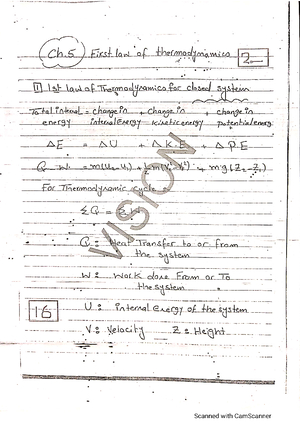 Ch.5 First law of thermodynamics 2
1 1st law of Thermodynamics for closed system
Total Internal = change in + change in + change in
energy internal energy kinetic energy potential energy
ΔE = ΔU + ΔK.E + ΔP.E
Q - W = m(U₂-U₁) + ½m(V₂²-V₁²) + mg(Z₂-Z₁)
For Thermodynamic cycle
ΣQ = ΣW
Q: Heat Transfer to or from
the system
W: Work done From or To
the system
16 U: internal Energy of the system
V: Velocity Z: Height
VISION
Scanned with CamScanner